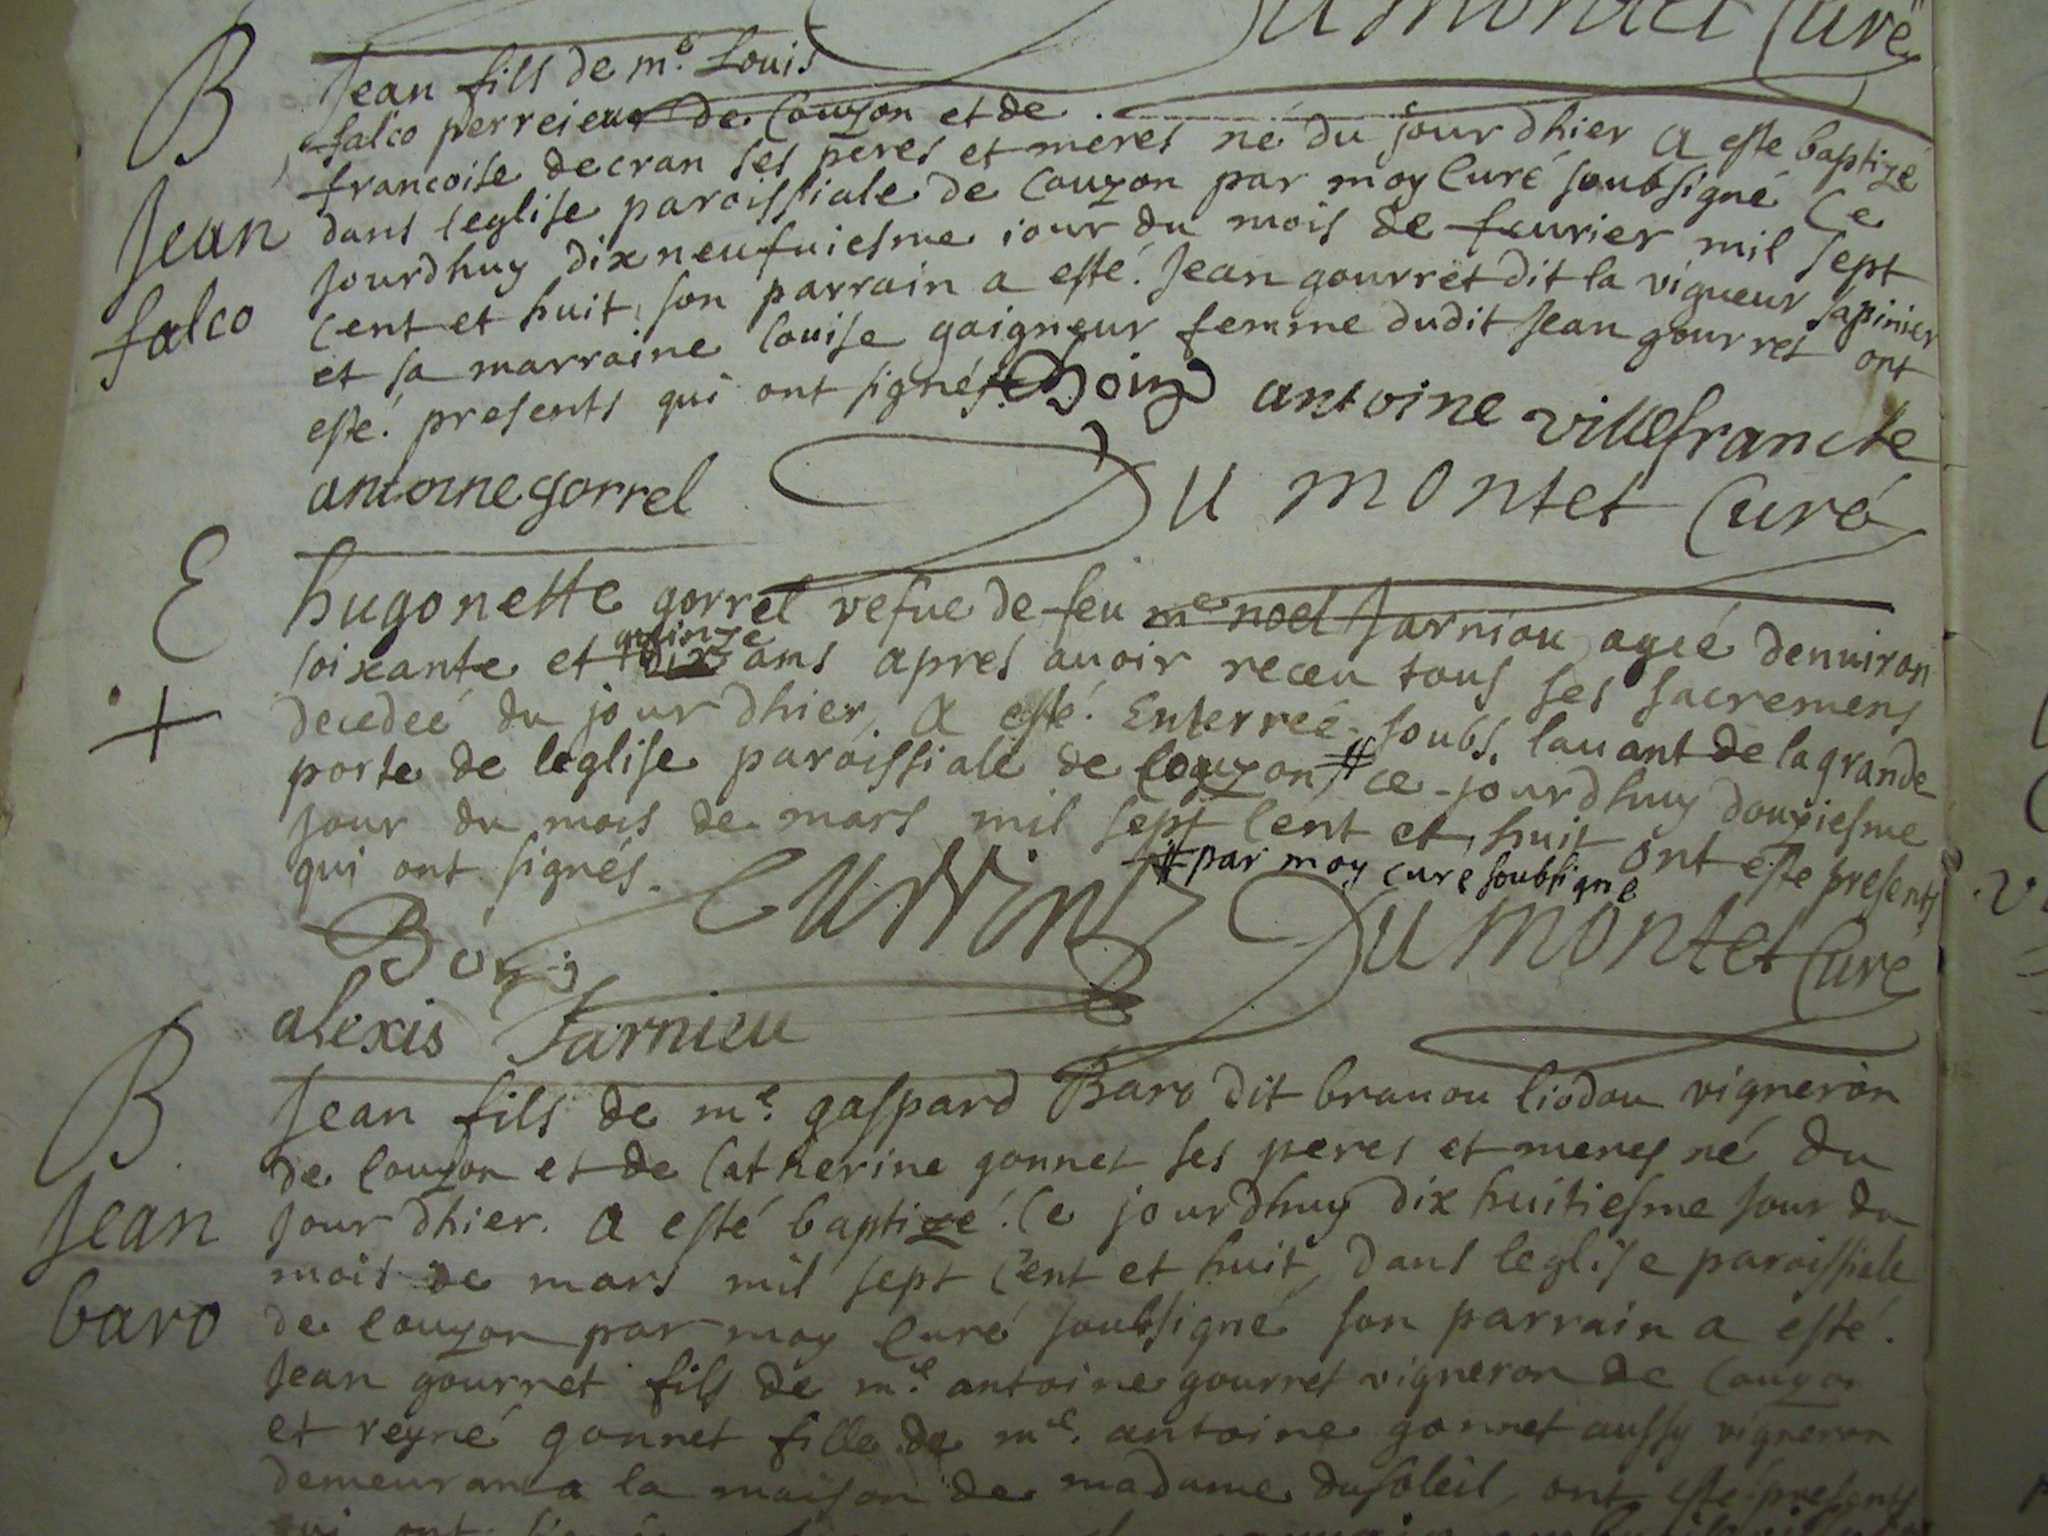 Dumontet Curé
B
Jean fils de me Louis
falco perreieur de Couzon et de
francoise decran ses peres et meres né du jour dhier a esté baptizé
dans leglise paroissiale de Couzon par moy Curé soubsigné Ce
Jourdhuy dixneufuiesme iour du mois de feurier mil sept
Cent et huit, son parrain a esté. Jean gourret dit la vigueur sapinier
et sa marraine louise gaigneur femme dudit Jean gourret ont
esté. presents qui ont signés
Jean
falco
antoine villefranche
antoine gorrel
Dumontet Curé
E
hugonette gorrel vefue de feu me noel Jarniou ageé denuiron
soixante et quinze ans apres auoir receu tous ses sacremens
decedeé du jour dhier, a esté. Enterreé soubs lauant de la grande
porte de leglise paroissiale de Couzon # ce jourdhuy douziesme
Jour du mois de mars mil sept Cent et huit ont esté presents
qui ont signés.
# par moy curé soubsigné
Dumontet Curé
alexis Jarnieu
B
Jean
baro
Jean fils de me. gaspard Baro dit brauou liodou vigneron
de Couzon et de Catherine gonnet ses peres et meres né du
Jour dhier. a esté baptizé. Ce jourdhuy dix huitiesme Jour du
mois de mars mil sept Cent et huit, dans leglise paroissiale
de Couzon par moy Curé soubsigné son parrain a esté.
Jean gourret fils de me. antoine gourret vigneron de Couzon
et reyné gonnet fille de me. antoine gonnet aussy vigneron
demeurant a la maison de madame dusoleil, ont esté presents
qui ont